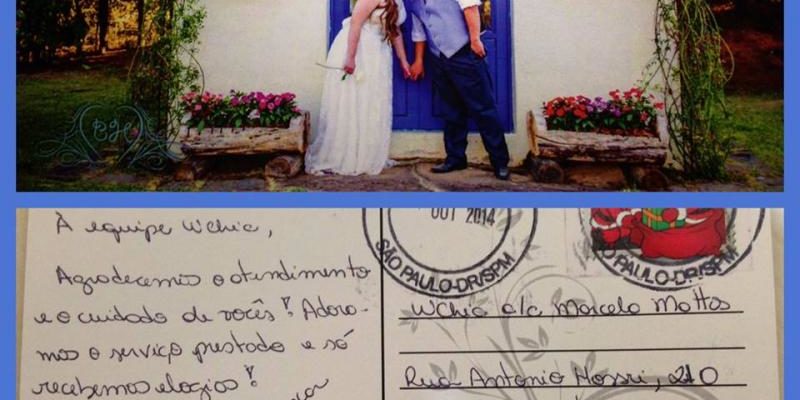 À equipe Wchic,
Agradecemos o atendimento
e o cuidado de vocês! Adora-
mos o serviço prestado e só
recebemos elogios!
OUT 2014
SÃO PAULO-DR/SPM
PAULO-DR/SPM
Wchic a/c Marcelo Mattos
Rua Antonio Hossri, 210